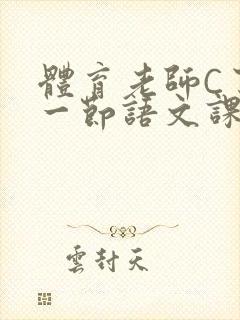 體育老師C
一節語文課
雲封天